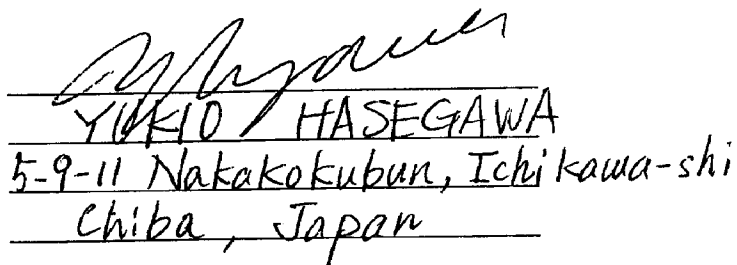 YUKIO HASEGAWA
5-9-11 Nakakokubun, Ichikawa-shi
Chiba, Japan